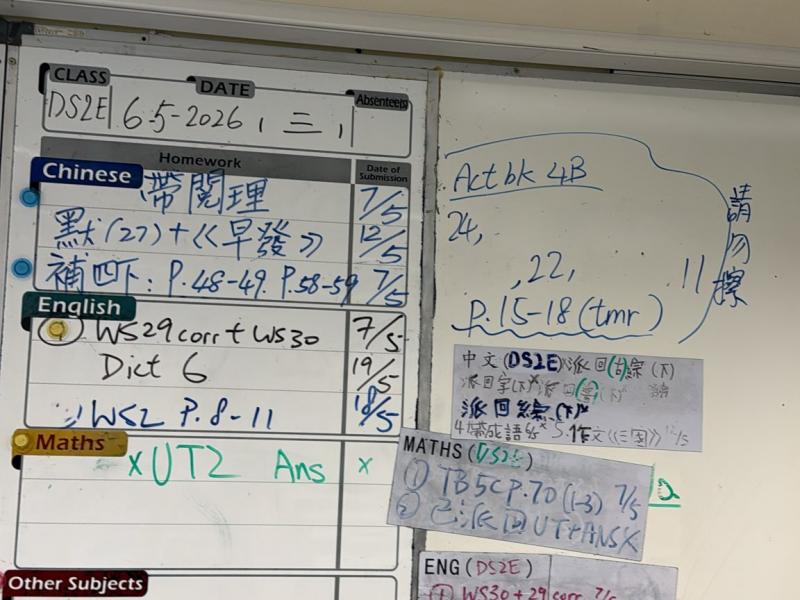 CLASS DATE Absentee(s)
DS2E 6.5-2026, 三,
Homework Date of Submission
Chinese
帶閱理 7/5
默(27)+《早發》 12/5
補四下: P.48-49. P.58-59 7/5
English
WS29 corr + WS30 7/5
Dict 6 19/5
WS2 P.8-11 18/5
Maths
x UT2 Ans x
Other Subjects
Act bk 4B
24,
,22, 11
P.15-18 (tmr)
請勿擦
中文(DS2E)派回
派回
派回綜(下)
帶成語 5.作文《三國》 12/5
MATHS (DS2E)
① TB5C P.70 (1-3) 7/5
② 已派回 UT+ANS X
ENG (DS2E)
① WS30+29 corr 7/5